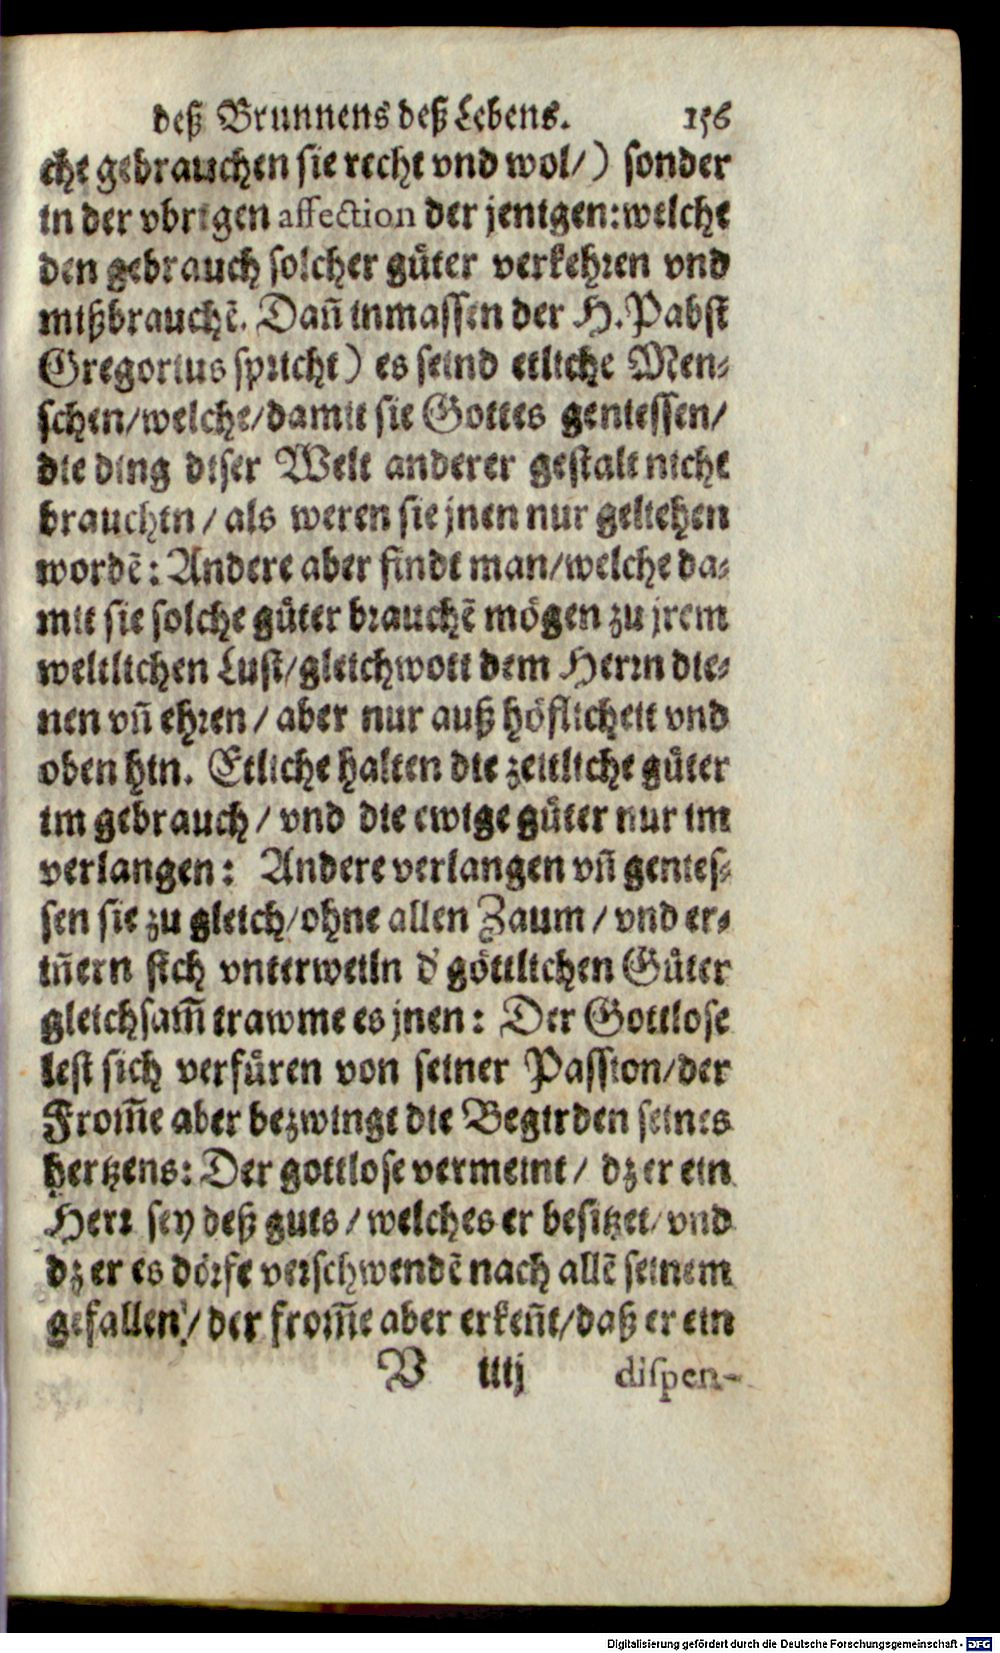 deß Brunnens deß Lebens. 156
che gebrauchen sie recht vnd wol/) sonder
in der vbrigen affection der jenigen: welche
den gebrauch solcher gůter verkehren vnd
mißbrauchē. Dañ inmassen der H. Pabst
Gregorius spricht) es seind etliche Men-
schen/welche/damit sie Gottes geniessen/
die ding diser Welt anderer gestalt nicht
brauchen / als weren sie jnen nur geliehen
wordē: Andere aber findt man/welche da-
mit sie solche gůter brauchē mögen zu jrem
weltlichen Lust/gleichwoll dem Herrn die-
nen vñ ehren / aber nur auß höflicheit vnd
oben hin. Etliche halten die zeitliche gůter
im gebrauch / vnd die ewige gůter nur im
verlangen: Andere verlangen vñ genies-
sen sie zu gleich/ohne allen Zaum / vnd er-
iñern sich vnterweiln d' göttlichen Gůter
gleichsam̃ trawme es jnen: Der Gottlose
lest sich verfůren von seiner Passion/der
From̃e aber bezwingt die Begirden seines
hertzens: Der gottlose vermeint / dz er ein
Herr sey deß guts / welches er besitzet/ vnd
dz er es dörfe verschwendē nach allē seinem
gefallen / der from̃e aber erkeñt/daß er ein
V iiij dispen-
Digitalisierung gefördert durch die Deutsche Forschungsgemeinschaft - DFG